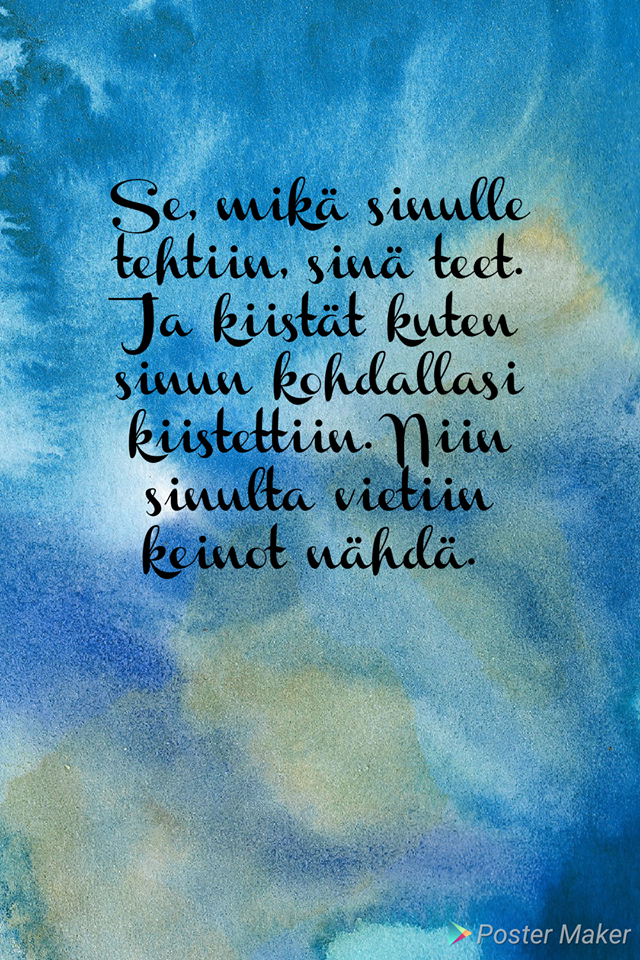 Se, mikä sinulle
tehtiin, sinä teet.
Ja kiistät kuten
sinun kohdallasi
kiistettiin. Niin
sinulta vietiin
keinot nähdä.
Poster Maker